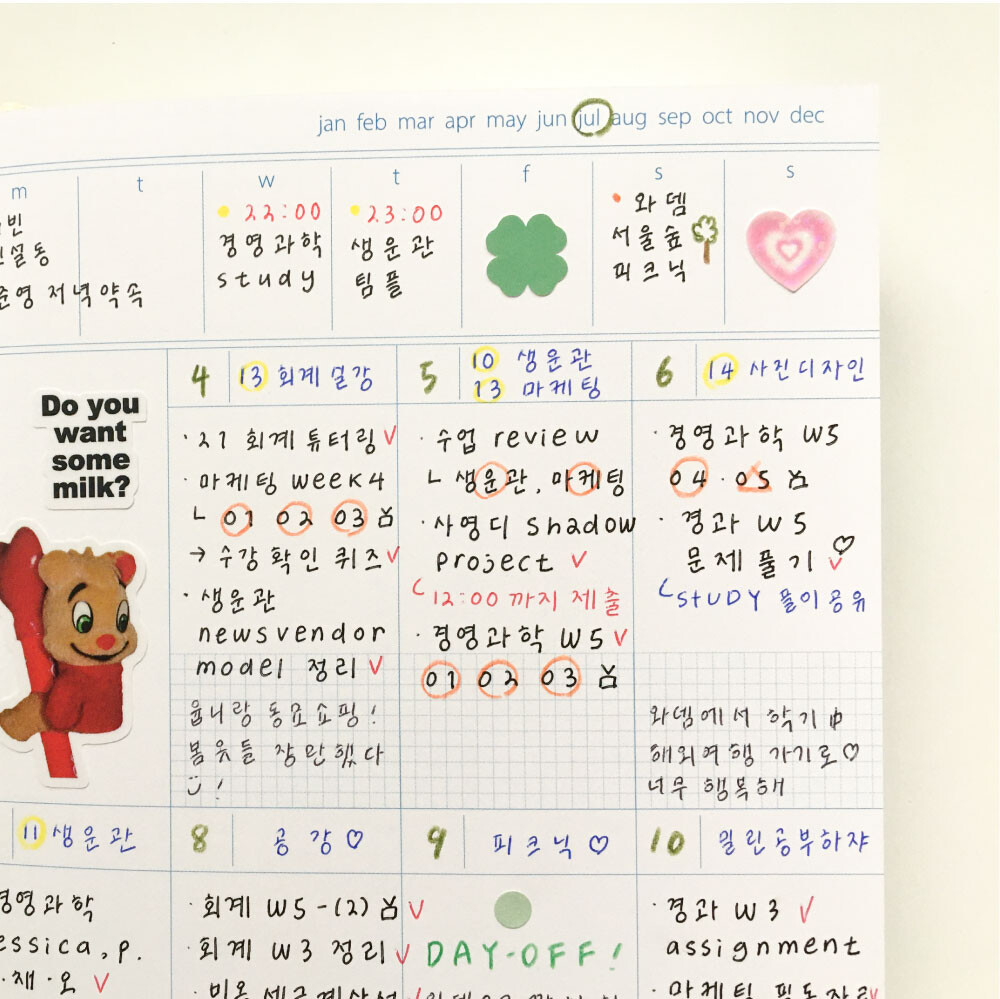 jan feb mar apr may jun jul aug sep oct nov dec
m t w t f s s
빈
설동
준영 저녁약속
22:00
경영과학
study
23:00
생운관
팀플
와뎀
서울숲
피크닉
Do you
want
some
milk?
4 13 회계실강
· 21 회계 튜터링 ✓
· 마케팅 week4
ㄴ 01 02 03
→ 수강 확인 퀴즈 ✓
· 생운관
newsvendor
model 정리 ✓
윱니랑 동묘쇼핑!
봄옷들 장만했다
5 10 생운관
13 마케팅
· 수업 review
ㄴ 생운관, 마케팅
· 사영디 shadow
project ✓
12:00 까지 제출
· 경영과학 W5 ✓
01 02 03
6 14 사진디자인
· 경영과학 W5
04 · 05
· 경과 W5
문제풀기 ✓
STUDY 풀이공유
와뎀에서 학기中
해외여행 가기로♡
너무 행복해
11 생운관
경영과학
essica, p.
· 재 · 오 ✓
8 공강♡
· 회계 W5-(2) ✓
· 회계 W3 정리 ✓
9 피크닉♡
DAY-OFF!
10 밀린공부하쟈
· 경과 W3 ✓
assignment
· 마케팅